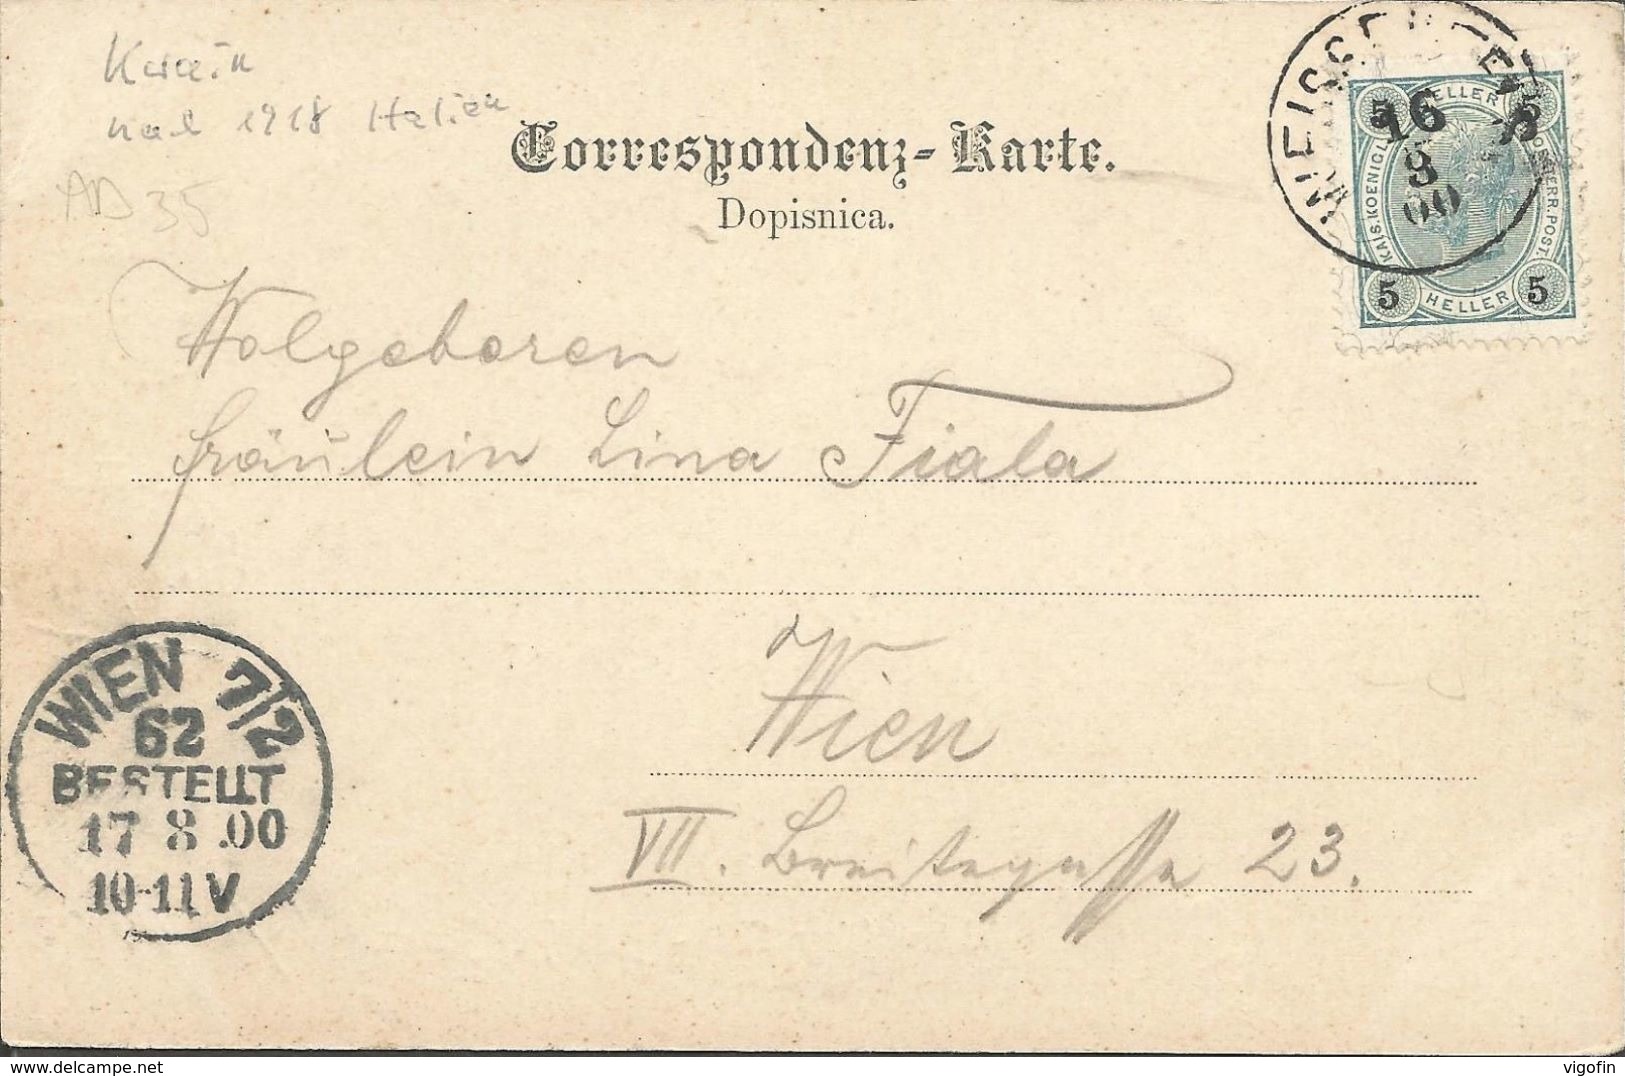 Krain
nach 1918 Italien
AD 35
Correspondenz-Karte.
Dopisnica.
5 HELLER 5
KAIS.KOENIGL. OESTERR.POST.
5 HELLER 5
16
8
00
Wolgeboren
Fräulein Lina Fiala
Wien
VII. Breitegasse 23.
WIEN 7/2
62
BESTELLT
17 8 .00
10-11 V
vigofin